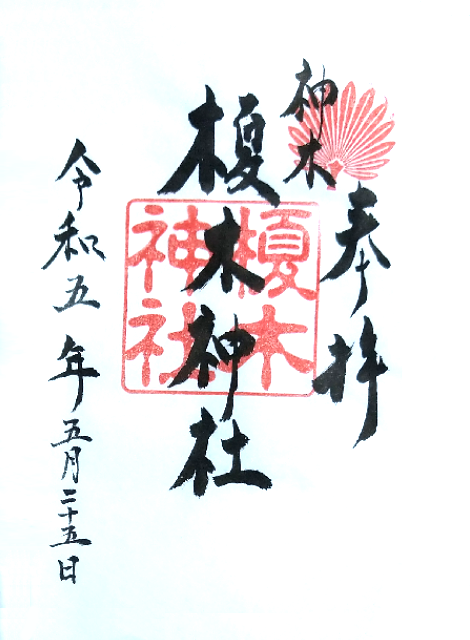 奉拝
神木
榎木神社
榎木
神社
令和五年五月二十五日